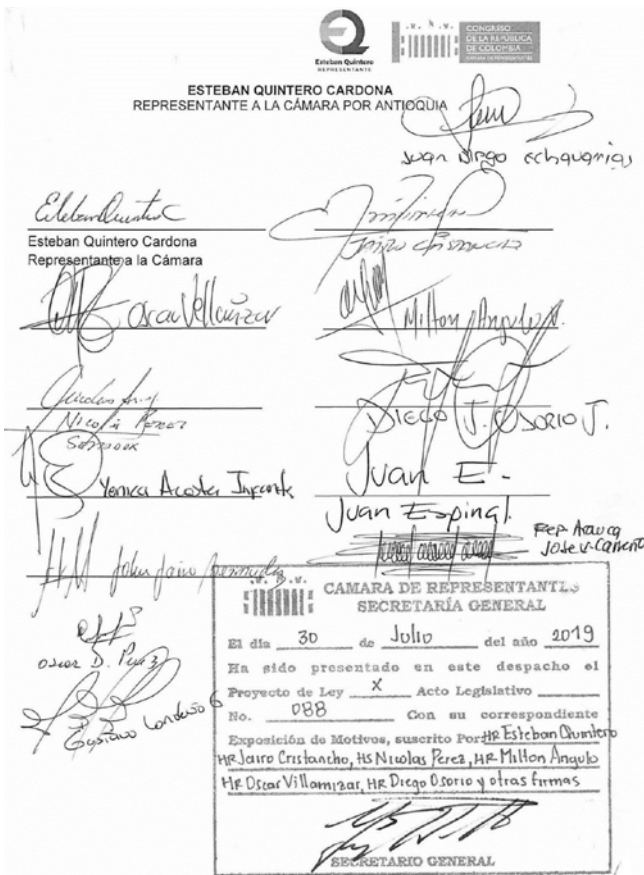 Esteban Quintero
REPRESENTANTE
CONGRESO
DE LA REPÚBLICA
DE COLOMBIA
CÁMARA DE REPRESENTANTES
ESTEBAN QUINTERO CARDONA
REPRESENTANTE A LA CÁMARA POR ANTIOQUIA
Juan Diego Echavarria
Esteban Quintero C
Esteban Quintero Cardona
Representante a la Cámara
Jairo Cristancho
Oscar Villamizar
Milton Angulo V.
Nicolás Pérez
Senador
DIEGO J. OSORIO J.
Yenica Acosta Infante
Juan E.
Juan Espinal.
Rep Arauca
Jose V. Carreño
John Jairo Bermudez
Oscar D. Perez
Gustavo Londoño G
CAMARA DE REPRESENTANTES
SECRETARÍA GENERAL
El día 30 de Julio del año 2019
Ha sido presentado en este despacho el
Proyecto de Ley X Acto Legislativo
No. 088 Con su correspondiente
Exposición de Motivos, suscrito Por: HR Esteban Quintero
HR Jairo Cristancho, HS Nicolas Perez, HR Milton Angulo
HR Oscar Villamizar, HR Diego Osorio y otras firmas
SECRETARIO GENERAL